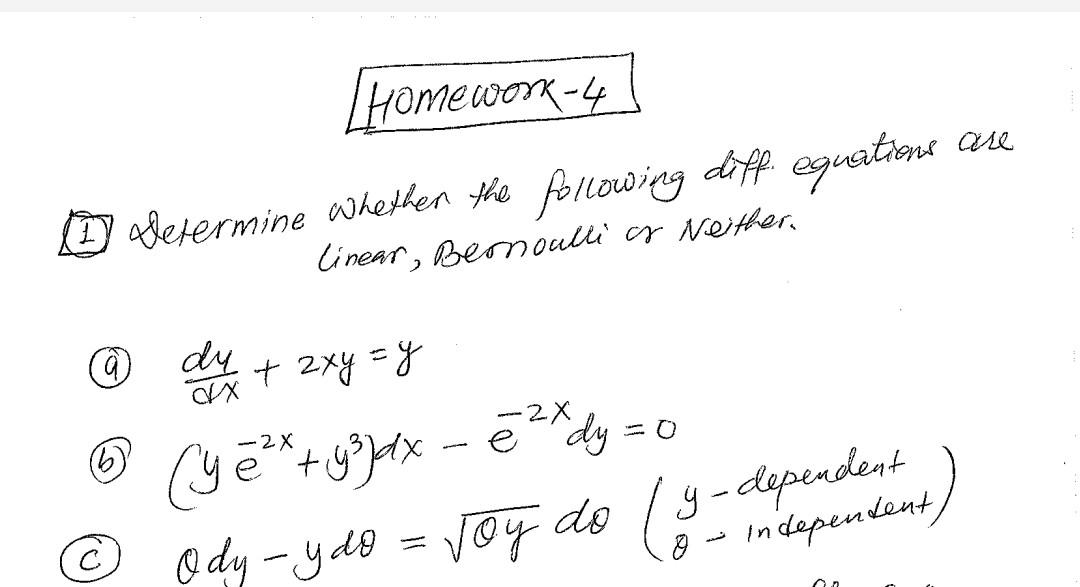 Homework-4
1 Determine whether the following diff. equations are
linear, Bernoulli or Neither.
a dy/dx + 2xy = y
b (ye^-2x + y^3)dx - e^-2x dy = 0
c θdy - ydθ = √θy dθ (y - dependent
θ - independent)